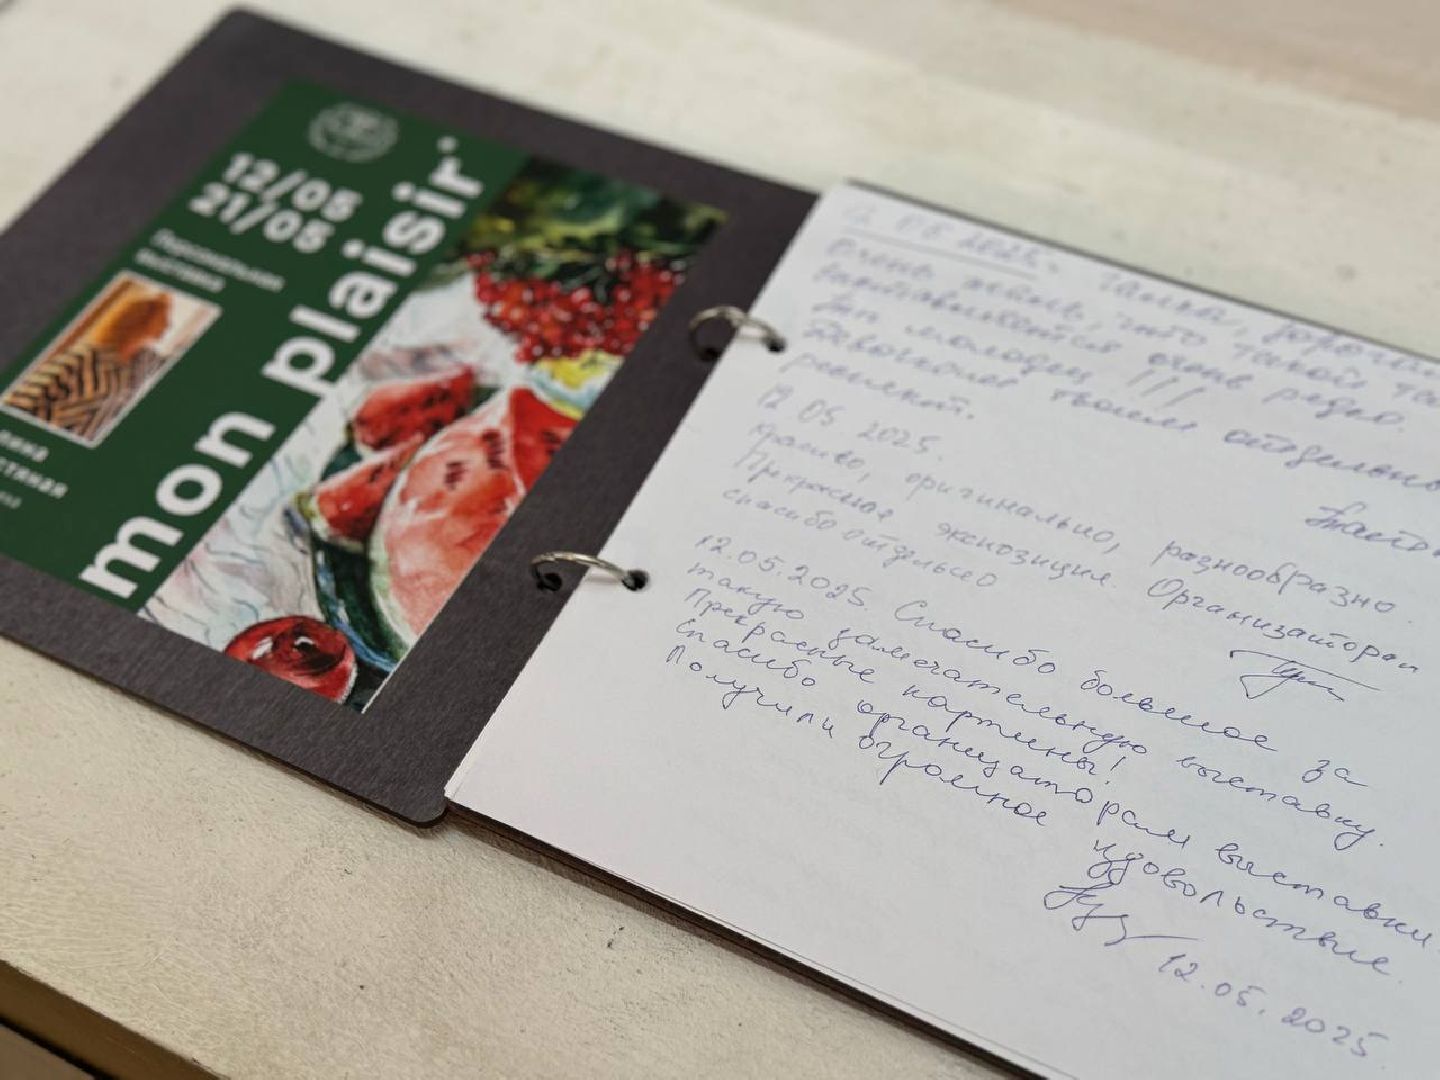 12/05
21/05
Персональная
выставка
mon plaisir
12.05.2025.
Очень жаль, что такой
выставляется очень редко.
Ты молодец!!!
Девочкам твоим отдельно
12.05.2025.
Красиво, оригинально, разнообразно.
Прекрасная экспозиция. Организаторам
спасибо отдельно
12.05.2025. Спасибо большое за
такую замечательную выставку.
Прекрасные картины!
Спасибо организаторам выставки.
Получили огромное удовольствие.
12.05.2025